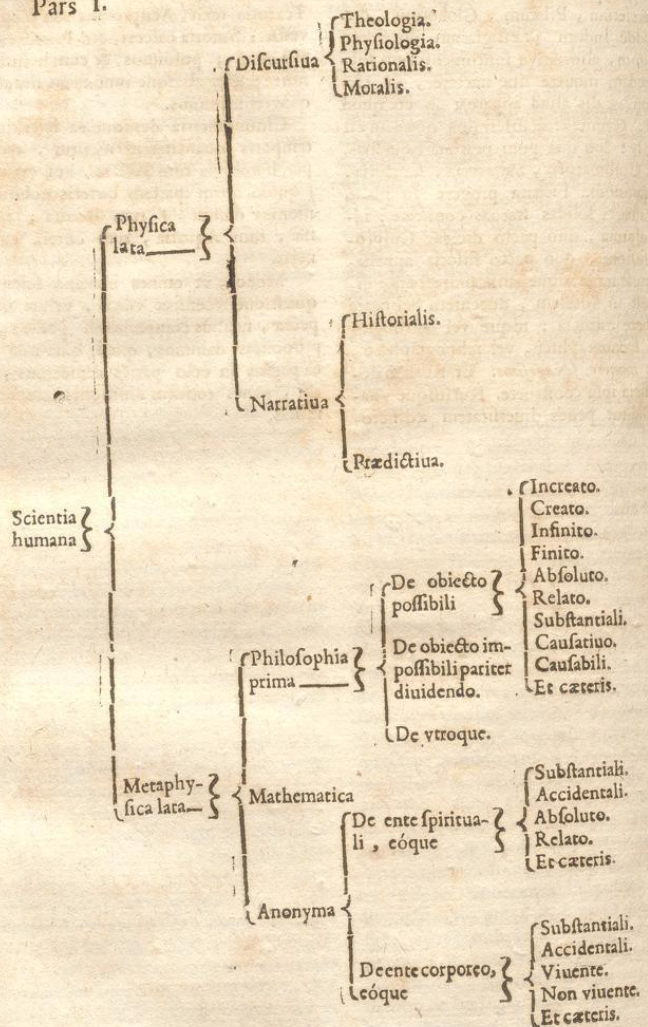 Pars I.
Scientia
humana
Physica
lata
Discursiua
Theologia.
Physiologia.
Rationalis.
Moralis.
Narratiua
Historialis.
Prædictiua.
Metaphy-
sica lata
Philosophia
prima
De obiecto
possibili
Increato.
Creato.
Infinito.
Finito.
Absoluto.
Relato.
Substantiali.
Causatiuo.
Causabili.
Et cæteris.
De obiecto im-
possibili pariter
diuidendo.
De vtroque.
Mathematica
Anonyma
De ente spiritua-
li , eóque
Substantiali.
Accidentali.
Absoluto.
Relato.
Et cæteris.
De ente corporeo,
eóque
Substantiali.
Accidentali.
Viuente.
Non viuente.
Et cæteris.